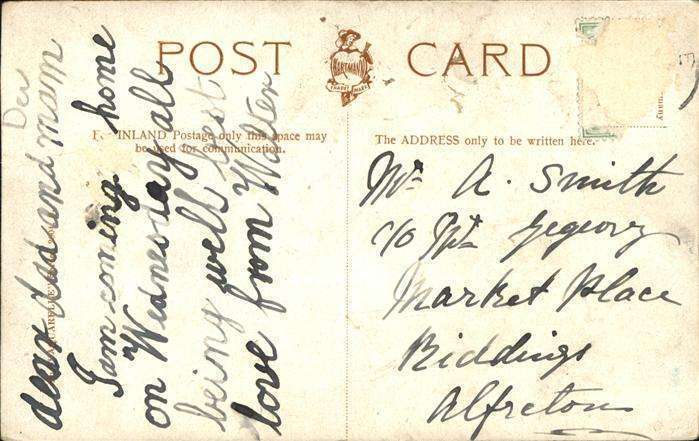 POST CARD
HARTMANN
TRADE MARK
INLAND Postage only this space may
be used for communication.
The ADDRESS only to be written here.
dear dad and mam
I am coming home
on Wednesday all
being well best
love from Walter
Mr A. Smith
c/o Mr Gregory
Market Place
Riddings
Alfreton